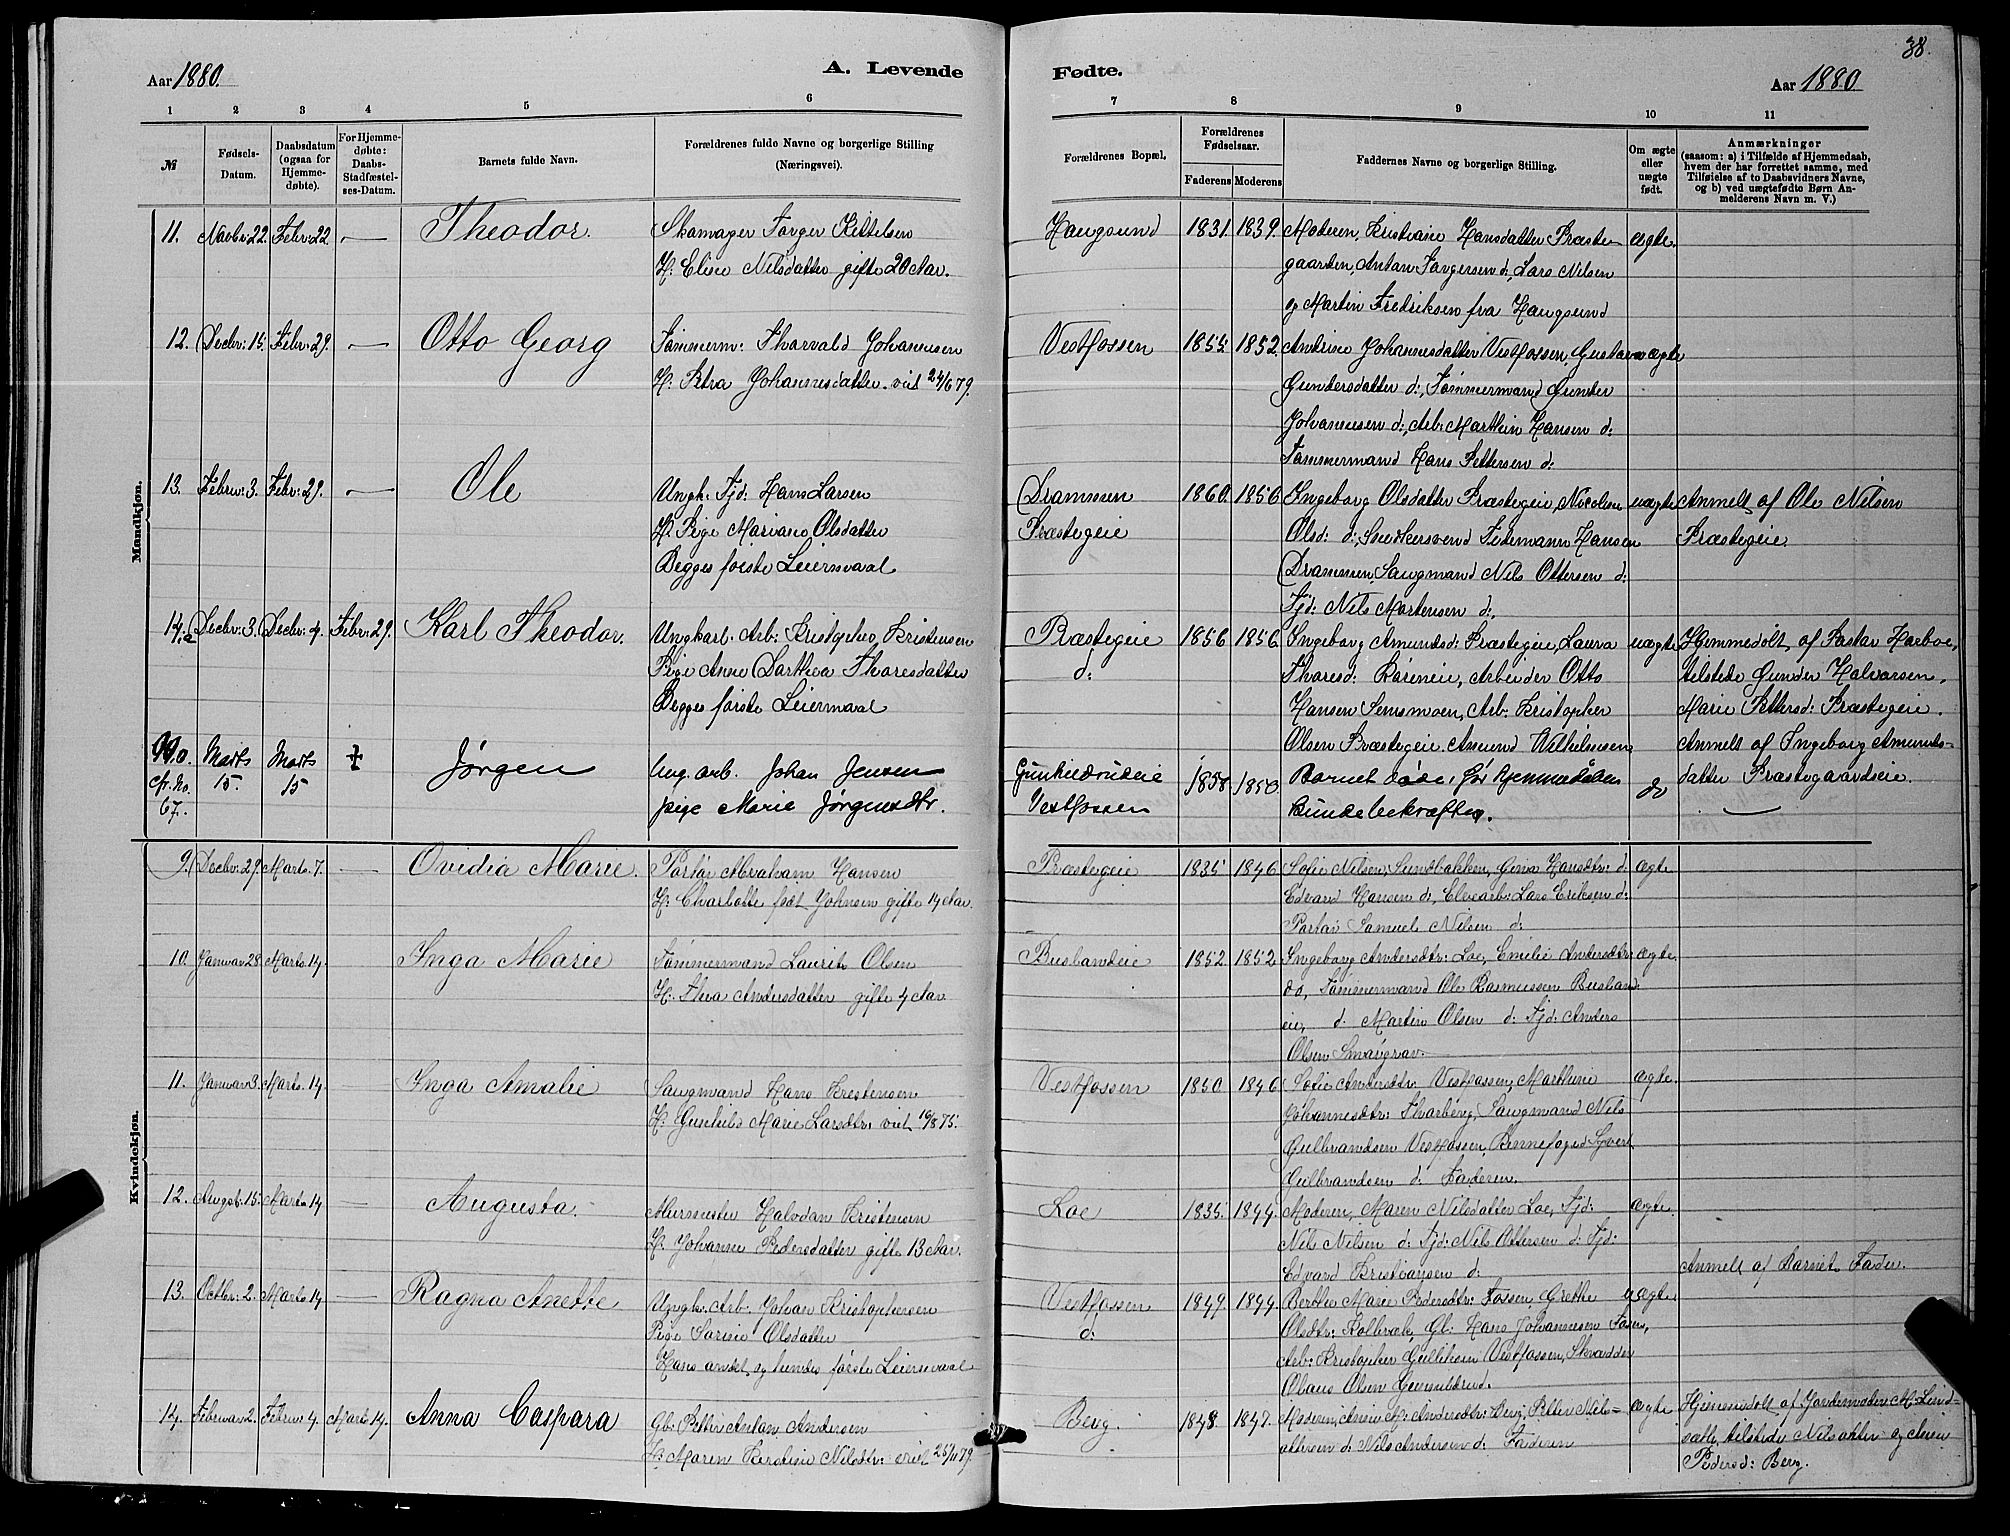 38.
Aar 1880.
A. Levende
Fødte.
Aar 1880
1 2 3 4 5 6 7 8 9 10 11
№
Fødsels-
Datum.
Daabsdatum
(ogsaa for
Hjemme-
døbte).
For Hjemme-
døbte:
Daabs-
Stadfæstel-
ses-Datum.
Barnets fulde Navn.
Forældrenes fulde Navne og borgerlige Stilling
(Næringsvei).
Forældrenes Bopæl.
Forældrenes
Fødselsaar.
Faderens Moderens
Faddernes Navne og borgerlige Stilling.
Om ægte
eller
uægte
født.
Anmærkninger
(saasom: a) i Tilfælde af Hjemmedaab,
hvem der har forrettet samme, med
Tilføielse af to Daabsvidners Navne,
og b) ved uægtefødte Børn An-
melderens Navn m. V.)
Mandkjøn.
11. Novbr: 22. Febr: 22 — Theodor.
Skomager Torger Kittelsen
H: Eline Nilsdatter gifte 20 Aar.
Haugsund 1831. 1839.
Moderen, Kristiane Hansdatter Præste-
gaarden, Anton Torgersen d:, Lars Nilsen
og Martin Fredriksen fra Haugsund
ægte.
12. Decbr: 15. Febr: 29. — Otto Georg
Tømmerm: Thorvald Johannesen
H: Petra Johannesdatter. viet 24/6 79.
Vestfossen 1855. 1852.
Andrine Johannesdatter Vestfossen, Gustava
Gundersdatter d:, Tømmermand Gunder
Johannesen d:, Arb: Marthin Hansen d:
Tømmermand Hans Pettersen d:
ægte
13. Februar: 3. Febr: 29. — Ole
Ungk: Tjd: Hans Larsen
Pige Mariane Olsdatter
Begges første Leiermaal
Drammen
Præstegeie
1860. 1856
Ingeborg Olsdatter Præstegeie, Nicoline
Olsd: d:, Snedkersvend Tidemann Hansen
Drammen, Saugmand Nils Ottersen d:
Tjd: Nils Mortensen d:
uægte
Anmelt af Ole Nilsen
Præstegeie.
14.a Decbr: 3. Decbr: 4. Febr: 29. Karl Theodor.
Ungkarl. Arb: Kristopher Kristensen
Pige Anne Dorthea Thoresdatter
Begges første Leiermaal
Præstegeie
d:
1856 1856.
Ingeborg Amundsd: Præstegeie, Laura
Thoresd: Børneie, Arbeider Otto
Hansen Semsmoen, Arb: Kristopher
Olsen Præstegeie. Amund Wilhelmsen
uægte
Hjemmedøbt af Pastor Harboe,
tilstede Gunder Halvorsen,
Marie Pettersd: Præstegeie.
Anmelt af Ingeborg Amunds-
datter Præstegaardseie.
No.
67.
Marts
15.
Marts
15
Jørgen
Ung. arb. Johan Jensen
pige Marie Jørgensdtr.
Vestfossen
1858 1850.
Barnet døde, før hjemmedåben
kunde bekræftes.
do
—
Kvindekjøn.
9. Decbr: 29. Marts. 7. — Ovidia Marie.
Portør Abraham Hansen
H: Charlotte født Johnsen gifte 14 Aar.
Præstegeie 1835 1846
Sofie Nilsen, Sundbakken, Gina Hansdtr: d:
Edvard Hansen d:, Elvearb: Lars Eriksen d:
Portør Samuel Nilsen d:
ægte
10. Januar 28. Marts. 14. Inga Marie
Tømmermand Laurits Olsen
H: Thea Andersdatter gifte 4 Aar
Buslandeie 1852 1852
Ingeborg Andersdtr: Loe, Emilie Andersdtr:
do, Tømmermand Ole Rasmussen Busland
eie, d: Martin Olsen d: Tjd: Anders
Olsen Smaugrav.
ægte.
11. Januar 3. Marts. 14. — Inga Amalie
Saugmand Hans Kristensen
H: Gunhild Marie Larsdtr: viet 10/8 75.
Vestfossen 1850 1846
Sofie Andersdtr: Vestfossen, Marthine
Johannesdtr: Thorbérg, Saugmand Nils
Gulbrandsen Vestfossen, Rennefoged Syvert
Gulbrandsen d: Faderen.
ægte.
12. Augst: 15. Marts. 14 — Augusta.
Murmester Halvdan Kristensen
H: Johanne Pedersdatter gifte 13 Aar.
Loe 1835. 1844.
Moderen, Maren Nilsdatter Loe, Tjd:
Nils Nilsen d: Tjd: Nils Ottersen d: Tjd:
Edvard Kristiansen d:
ægte.
13. Octbr: 2. Marts. 14 — Ragna Anette
Ungk. Arb: Johan Kristophersen
Pige Sarine Olsdatter
Hans andet og hendes første Leiermaal
Vestfossen
d:
1849. 1844.
Berthe Marie Pedersdtr: Fossen, Grethe
Olsdtr: Kolbræk, Gl: Hans Johannesen Fossen,
Arb: Kristopher Gulliksen Vestfossen, Skrædder
Olaus Olsen
uægte
Anmelt af Barnets Fader.
14. Februar 2. Februar 4. Marts. 14. Anna Caspara
Gb: Petter Anton Andersen
H: Maren Kirstine Nilsdtr: viet 25/11 79.
Berg 1848. 1847.
Moderen, Anne M: Andersdtr: Berg, Petter Nils-
Ottersen d: Nils Andersen d: Faderen
ægte
Hjemmedøbt af Jordemoder M. Lind-
sætle, tilstede Nils Otter og Anne
Pedersd: Berg.